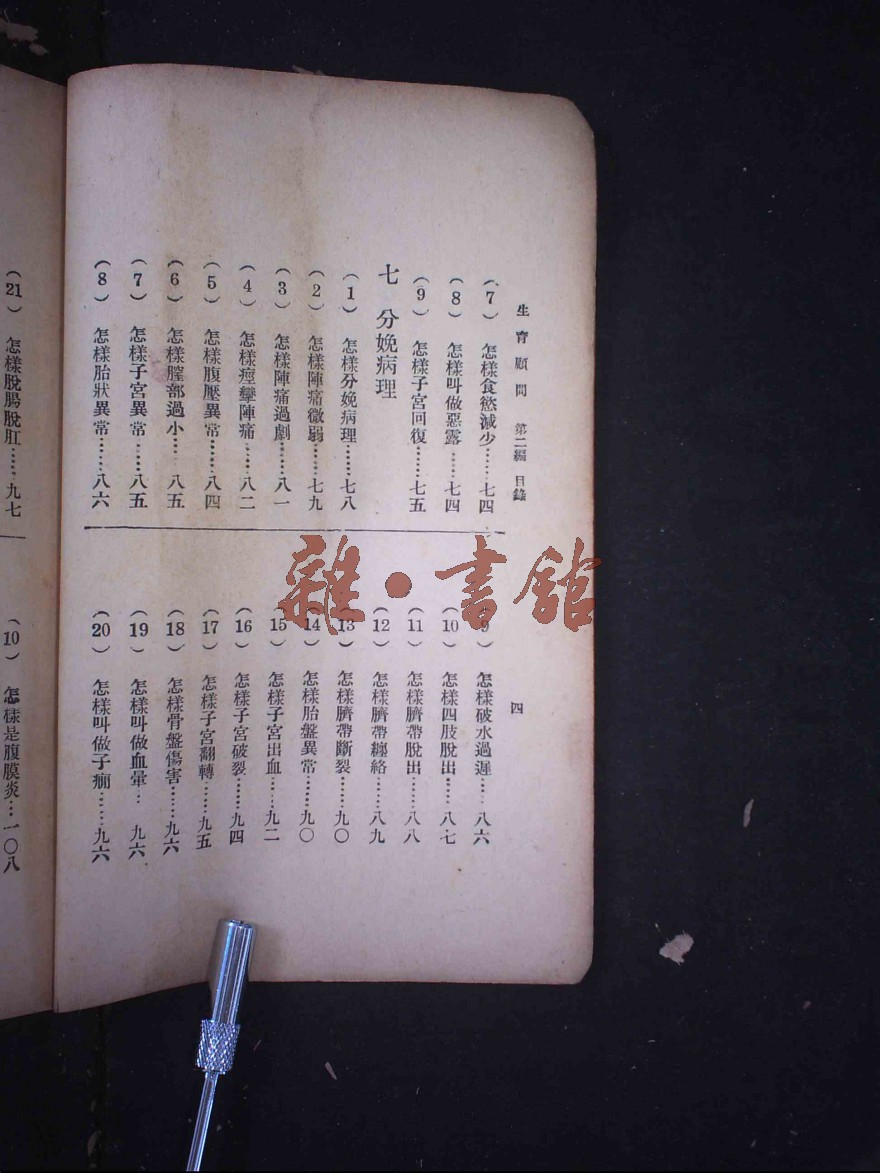 生育顧問　第二編　目錄
四
(7)　怎樣食慾減少……七四
(8)　怎樣叫做惡露……七四
(9)　怎樣子宮回復……七五
七　分娩病理
(1)　怎樣分娩病理……七八
(2)　怎樣陣痛微弱……七九
(3)　怎樣陣痛過劇……八一
(4)　怎樣痙攣陣痛……八二
(5)　怎樣腹壓異常……八四
(6)　怎樣膣部過小……八五
(7)　怎樣子宮異常……八五
(8)　怎樣胎狀異常……八六
(9)　怎樣破水過遲……八六
(10)　怎樣四肢脫出……八七
(11)　怎樣臍帶脫出……八八
(12)　怎樣臍帶纏絡……八九
(13)　怎樣臍帶斷裂……九〇
(14)　怎樣胎盤異常……九〇
(15)　怎樣子宮出血……九二
(16)　怎樣子宮破裂……九四
(17)　怎樣子宮翻轉……九五
(18)　怎樣骨盤傷害……九六
(19)　怎樣叫做血暈…九六
(20)　怎樣叫做子癇……九六
(21)　怎樣脫腸脫肛……九七
(10)　怎樣是腹膜炎…一〇八
雜·書館